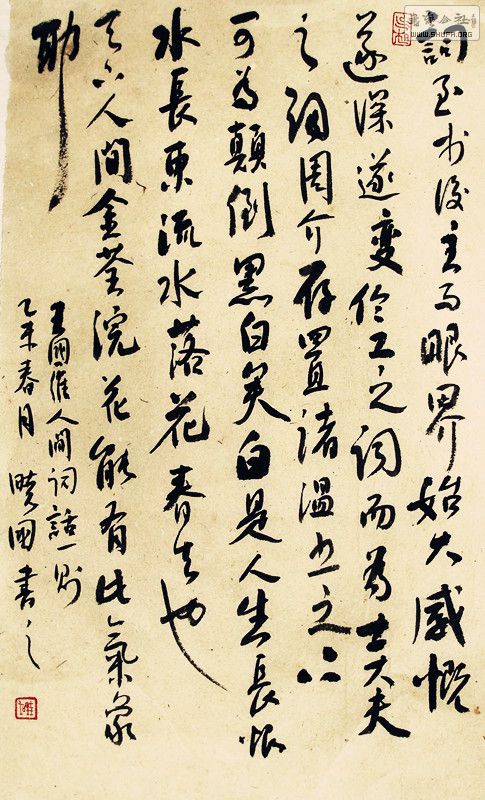 詞至李後主而眼界始大感慨
遂深遂變伶工之词而為士大夫
之詞周介存置諸温韋之下
可為顛倒黑白矣自是人生長恨
水長東流水落花春去也
天上人間金荃浣花能有此氣象
耶
王國維人間词話一則
乙未春月曉國書之
WWW.SHUFA.ORG